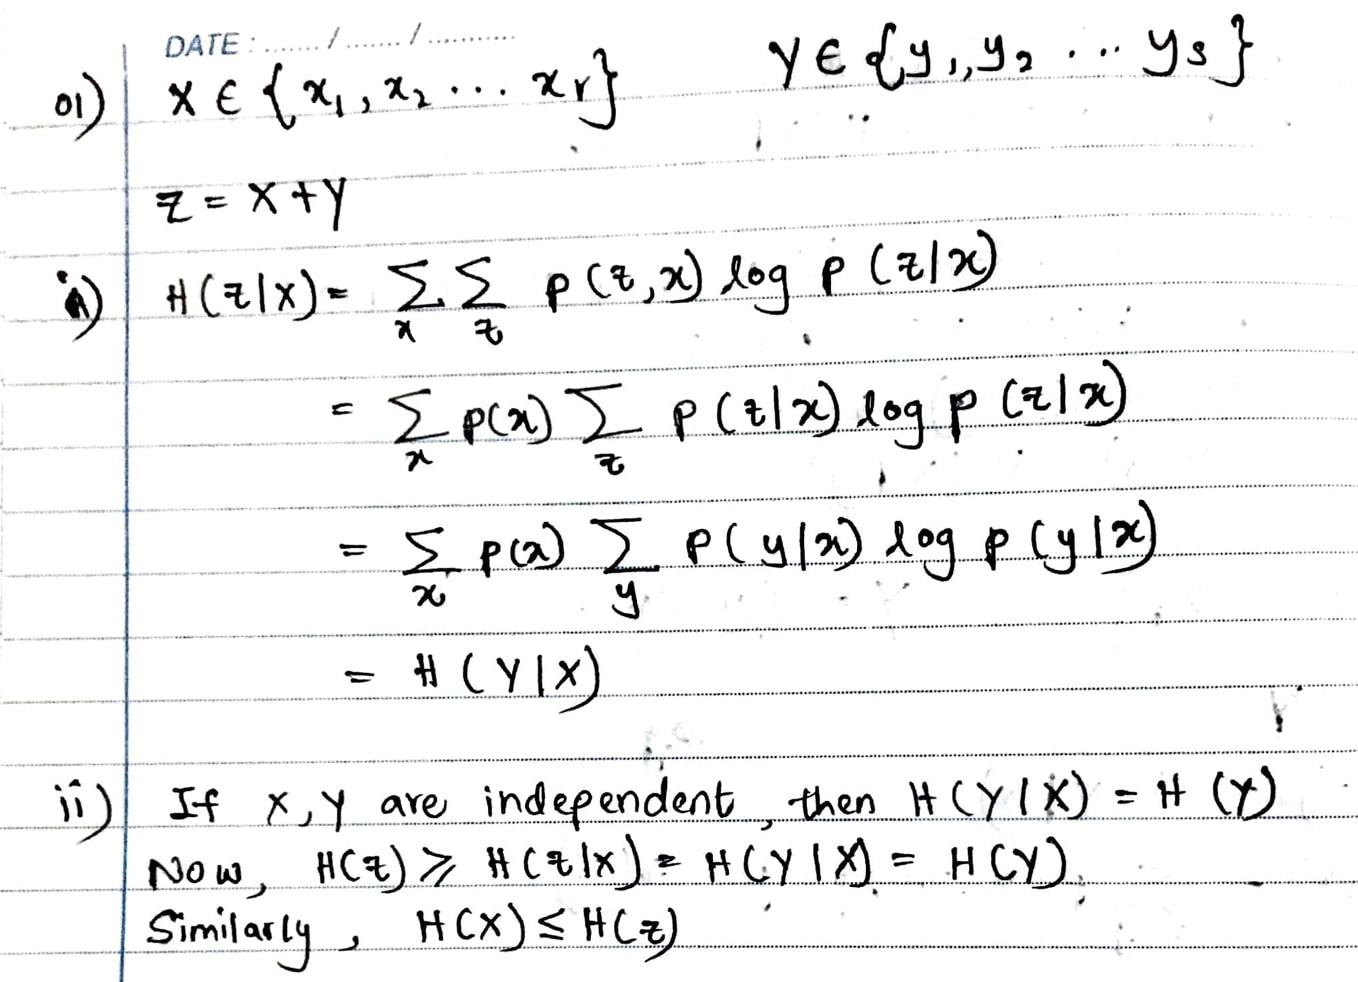 DATE : ....... / ....... / ...........
01) X ∈ { x₁, x₂ ... xr} Y ∈ {y₁, y₂ ... ys}
z = X + Y
i) H(z|X) = ∑x ∑z p(z,x) log p(z|x)
= ∑x p(x) ∑z p(z|x) log p(z|x)
= ∑x p(x) ∑y p(y|x) log p(y|x)
= H(Y|X)
ii) If X, Y are independent, then H(Y|X) = H(Y)
Now, H(z) ≥ H(z|x) = H(Y|X) = H(Y).
Similarly, H(X) ≤ H(z)